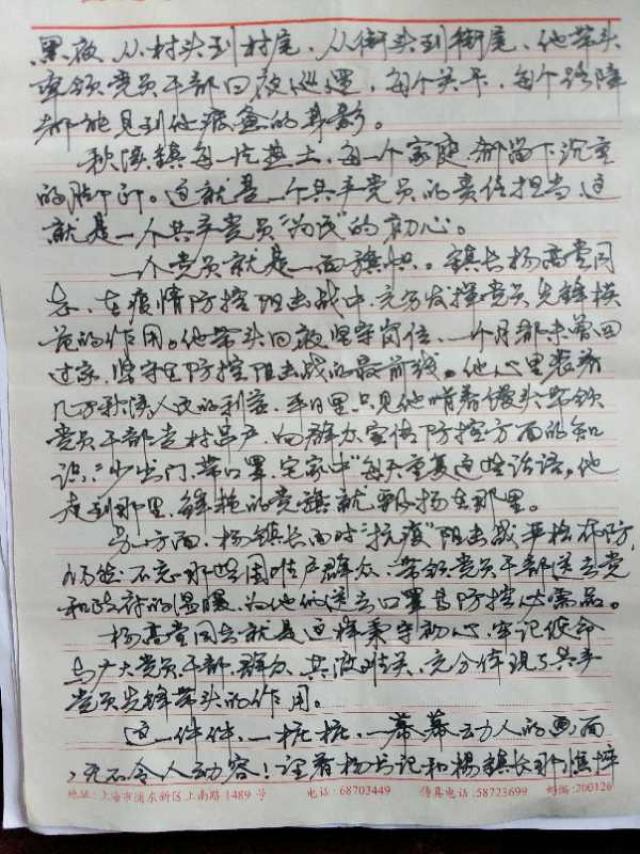 黑夜、从村头到村尾、从街头到街尾、他带头
率领党员干部日夜巡逻，每个关卡，每个路障
都能见到他疲惫的身影。
秋溪镇每一片热土、每一个家庭都留下沉重
的脚印。这就是一个共产党员的责任担当、这
就是一个共产党员“为民”的初心。
一个党员就是一面旗帜。镇长杨高堂同
志、在疫情防控阻击战中、充分发挥党员先锋模
范的作用。他带头日夜坚守岗位、一个月都未曾回
过家、坚守在防控阻击战的最前线。他心里装着
几万秋溪人民的利益、平日里只见他啃着馒头带领
党员干部走村串户、向群众宣传防控方面的知
识：“少出门、带口罩、宅家中”每天重复这些话语。他
走到那里、鲜艳的党旗就飘扬在那里。
另一方面、杨镇长面对“抗疫”阻击战严格布防、
仍然不忘那些困难户群众、带领党员干部送去党
和政府的温暖、为他们送去口罩等防控必需品。
杨高堂同志就是这样秉守初心、牢记使命
与广大党员干部、群众、共渡难关、充分体现了共产
党员先锋带头的作用。
这一件件、一桩桩、一幕幕动人的画面
，无不令人动容！望着杨书记和杨镇长那憔悴
地址:上海市浦东新区上南路1489号 电话:68703449 传真电话:58723699 邮编:200126